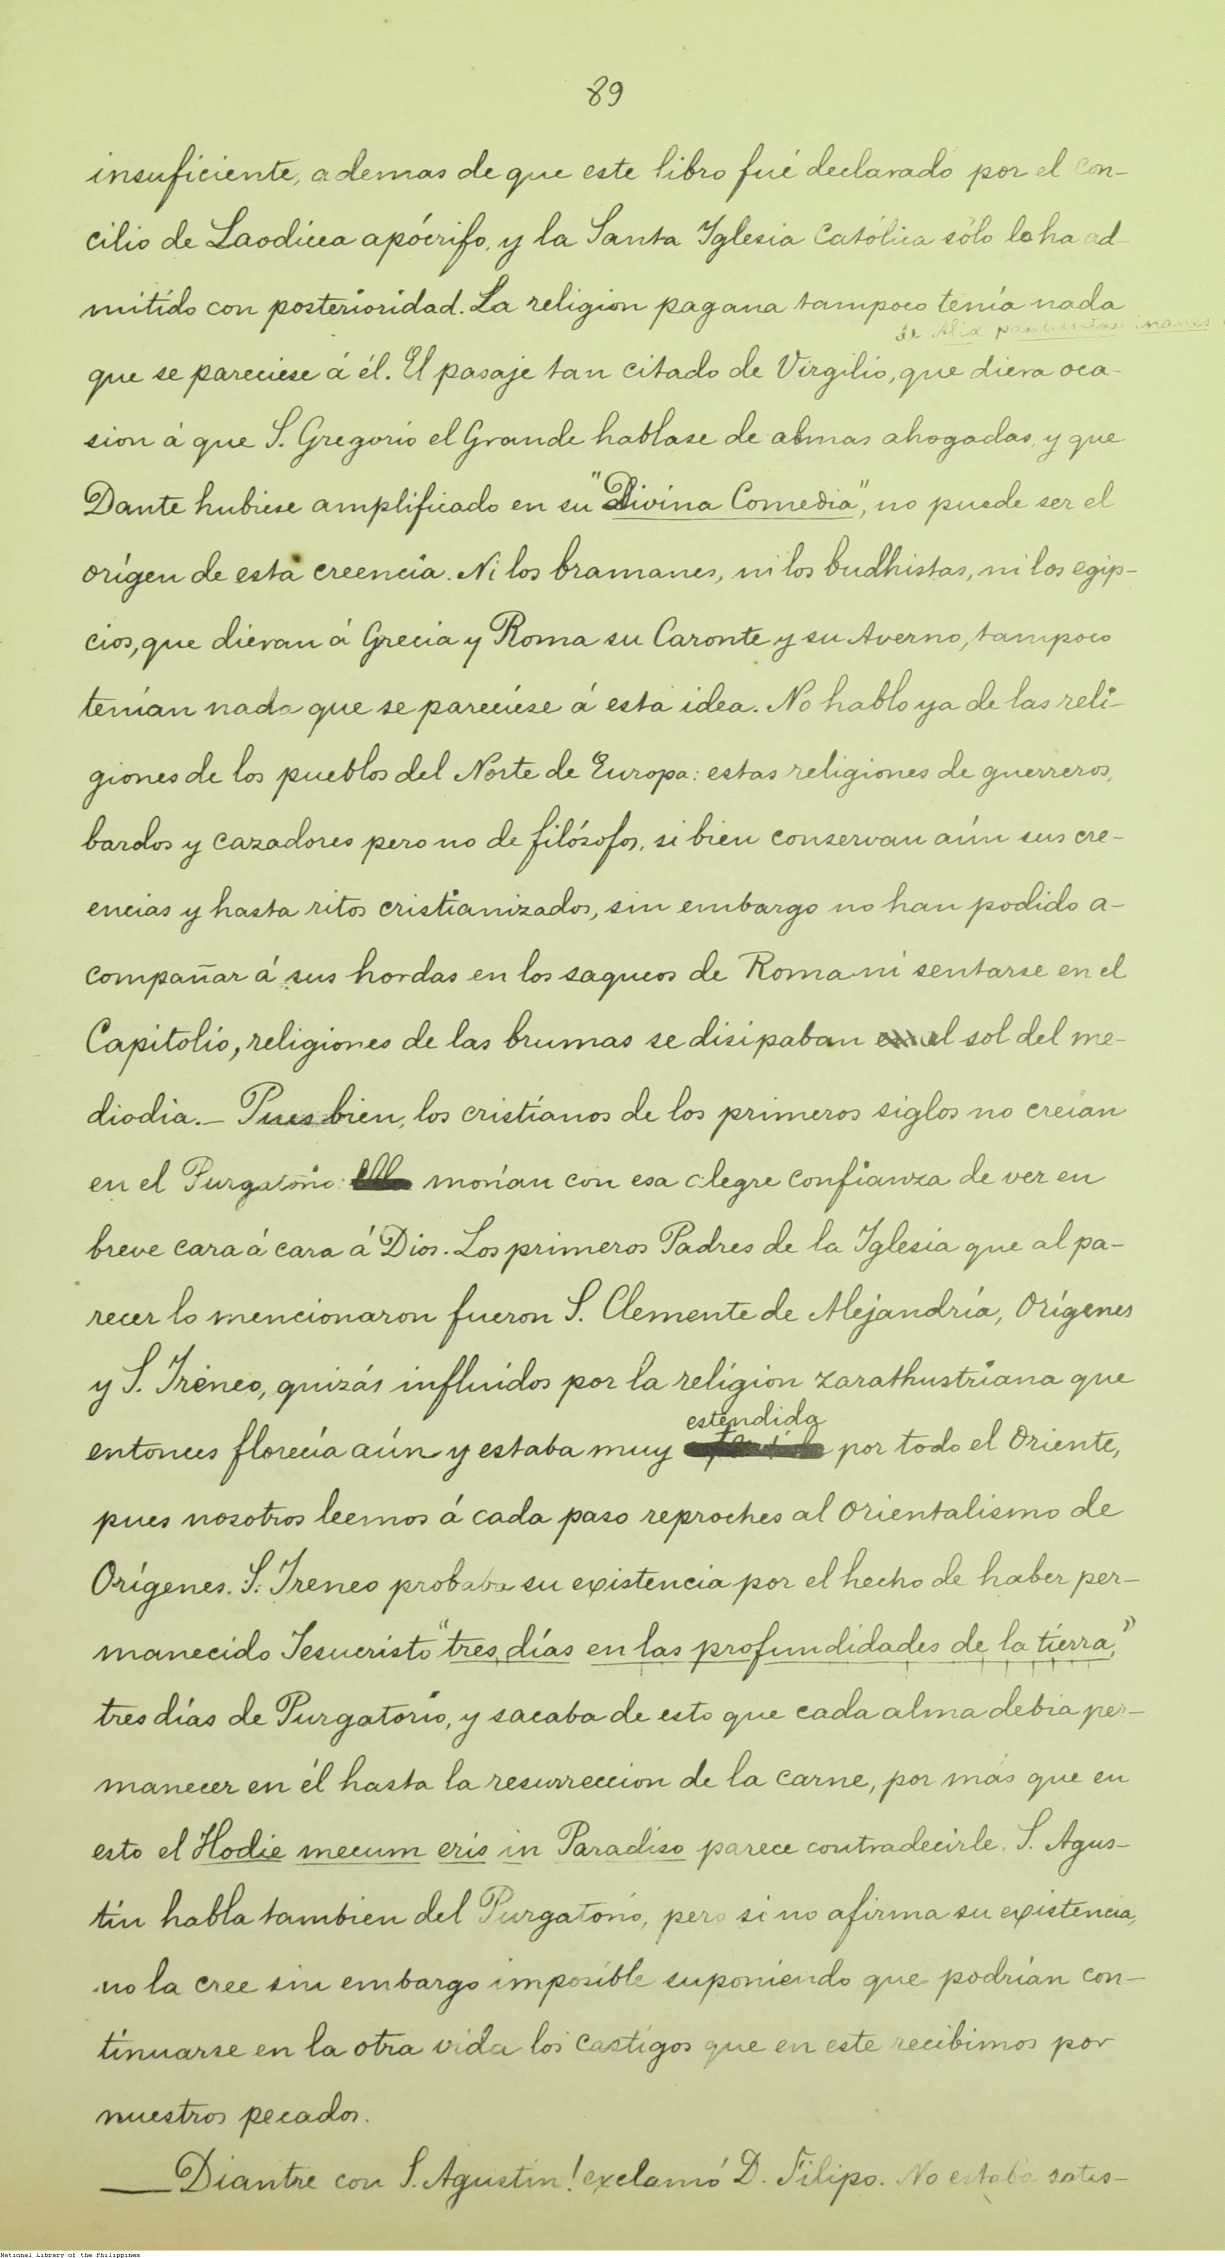 89
insuficiente, ademas de que este libro fué declarado por el con-
cilio de Laodicea apócrifo, y la Santa Iglesia Católica sólo lo ha ad-
mitido con posterioridad. La religion pagana tampoco tenía nada
que se pareciese á él. El pasaje tan citado de Virgilio, que diera oca-
sion á que S. Gregorio el Grande hablase de almas ahogadas, y que
Dante hubiese amplificado en su "Divina Comedia", no puede ser el
orígen de esta creencia. Ni los bramanes, ni los budhistas, ni los egip-
cios, que dieran á Grecia y Roma su Caronte y su Averno, tampoco
tenían nada que se pareciese á esta idea. No hablo ya de las reli-
giones de los pueblos del Norte de Europa: estas religiones de guerreros,
bardos y cazadores pero no de filósofos, si bien conservan aún sus cre-
encias y hasta ritos cristianizados, sin embargo no han podido a-
compañar á sus hordas en los saqueos de Roma ni sentarse en el
Capitolio, religiones de las brumas se disipaban el sol del me-
diodia.— Pues bien, los cristíanos de los primeros siglos no creían
en el Purgatorio: morían con esa alegre confianza de ver en
breve cara á cara á Dios. Los primeros Padres de la Iglesia que al pa-
recer lo mencionaron fueron S. Clemente de Alejandría, Orígenes
y S. Ireneo, quizás influidos por la religion zarathustriana que
estendida
entonces florecía aún y estaba muy por todo el Oriente,
pues nosotros leemos á cada paso reproches al Orientalismo de
Orígenes. S. Ireneo probaba su existencia por el hecho de haber per-
manecido Jesucristo "tres días en las profundidades de la tierra,"
tres días de Purgatorio, y sacaba de esto que cada alma debía per-
manecer en él hasta la resurreccion de la carne, por más que en
esto el Hodie mecum eris in Paradiso parece contradecirle. S. Agus-
tín habla tambien del Purgatorio, pero si no afirma su existencia,
no la cree sin embargo imposible suponiendo que podrían con-
tinuarse en la otra vida los castigos que en este recibimos por
nuestros pecados.
— Diantre con S. Agustín! exclamó D. Filipo. No estaba satis-
National Library of the Philippines